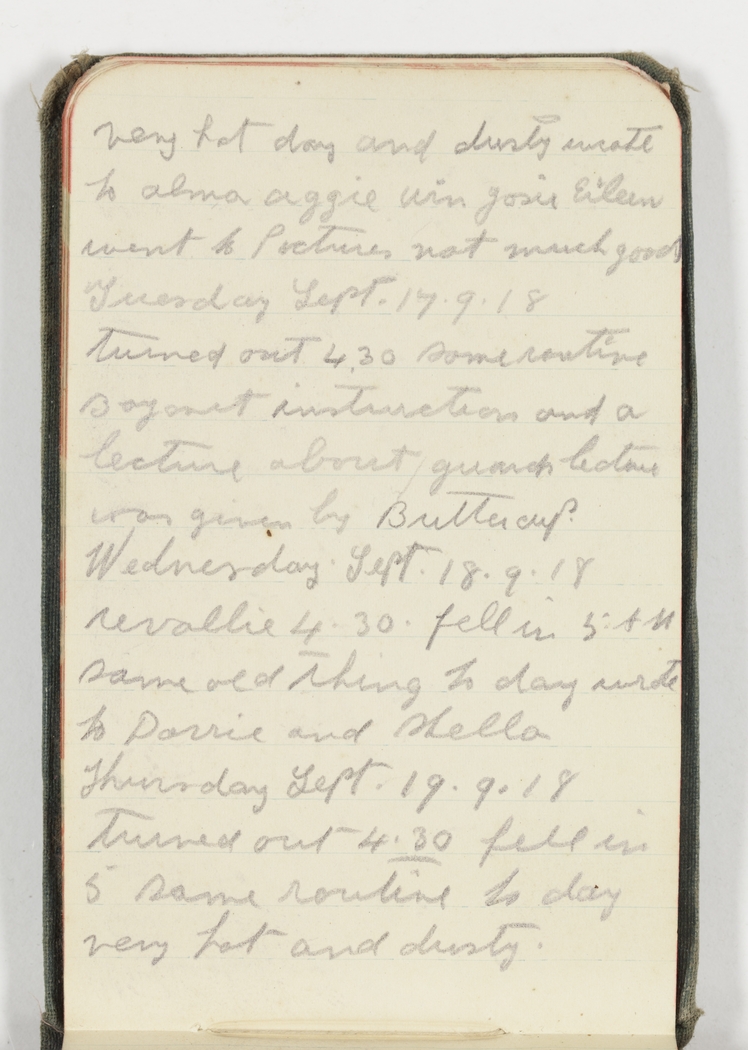 very hot day and dusty wrote
to alma aggie win Josie Eileen
went to Pictures not much good
Tuesday Sept. 17.9.18
turned out 4.30 same routine
Bayonet instruction and a
lecture about guards lecture
was given by Buttercup.
Wednesday Sept. 18.9.18
revallie 4.30. fell in 5 AM
same old thing to day wrote
to Dorrie and Stella
Thursday Sept. 19.9.18
turned out 4.30 fell in
5 same routine to day
very hot and dusty.